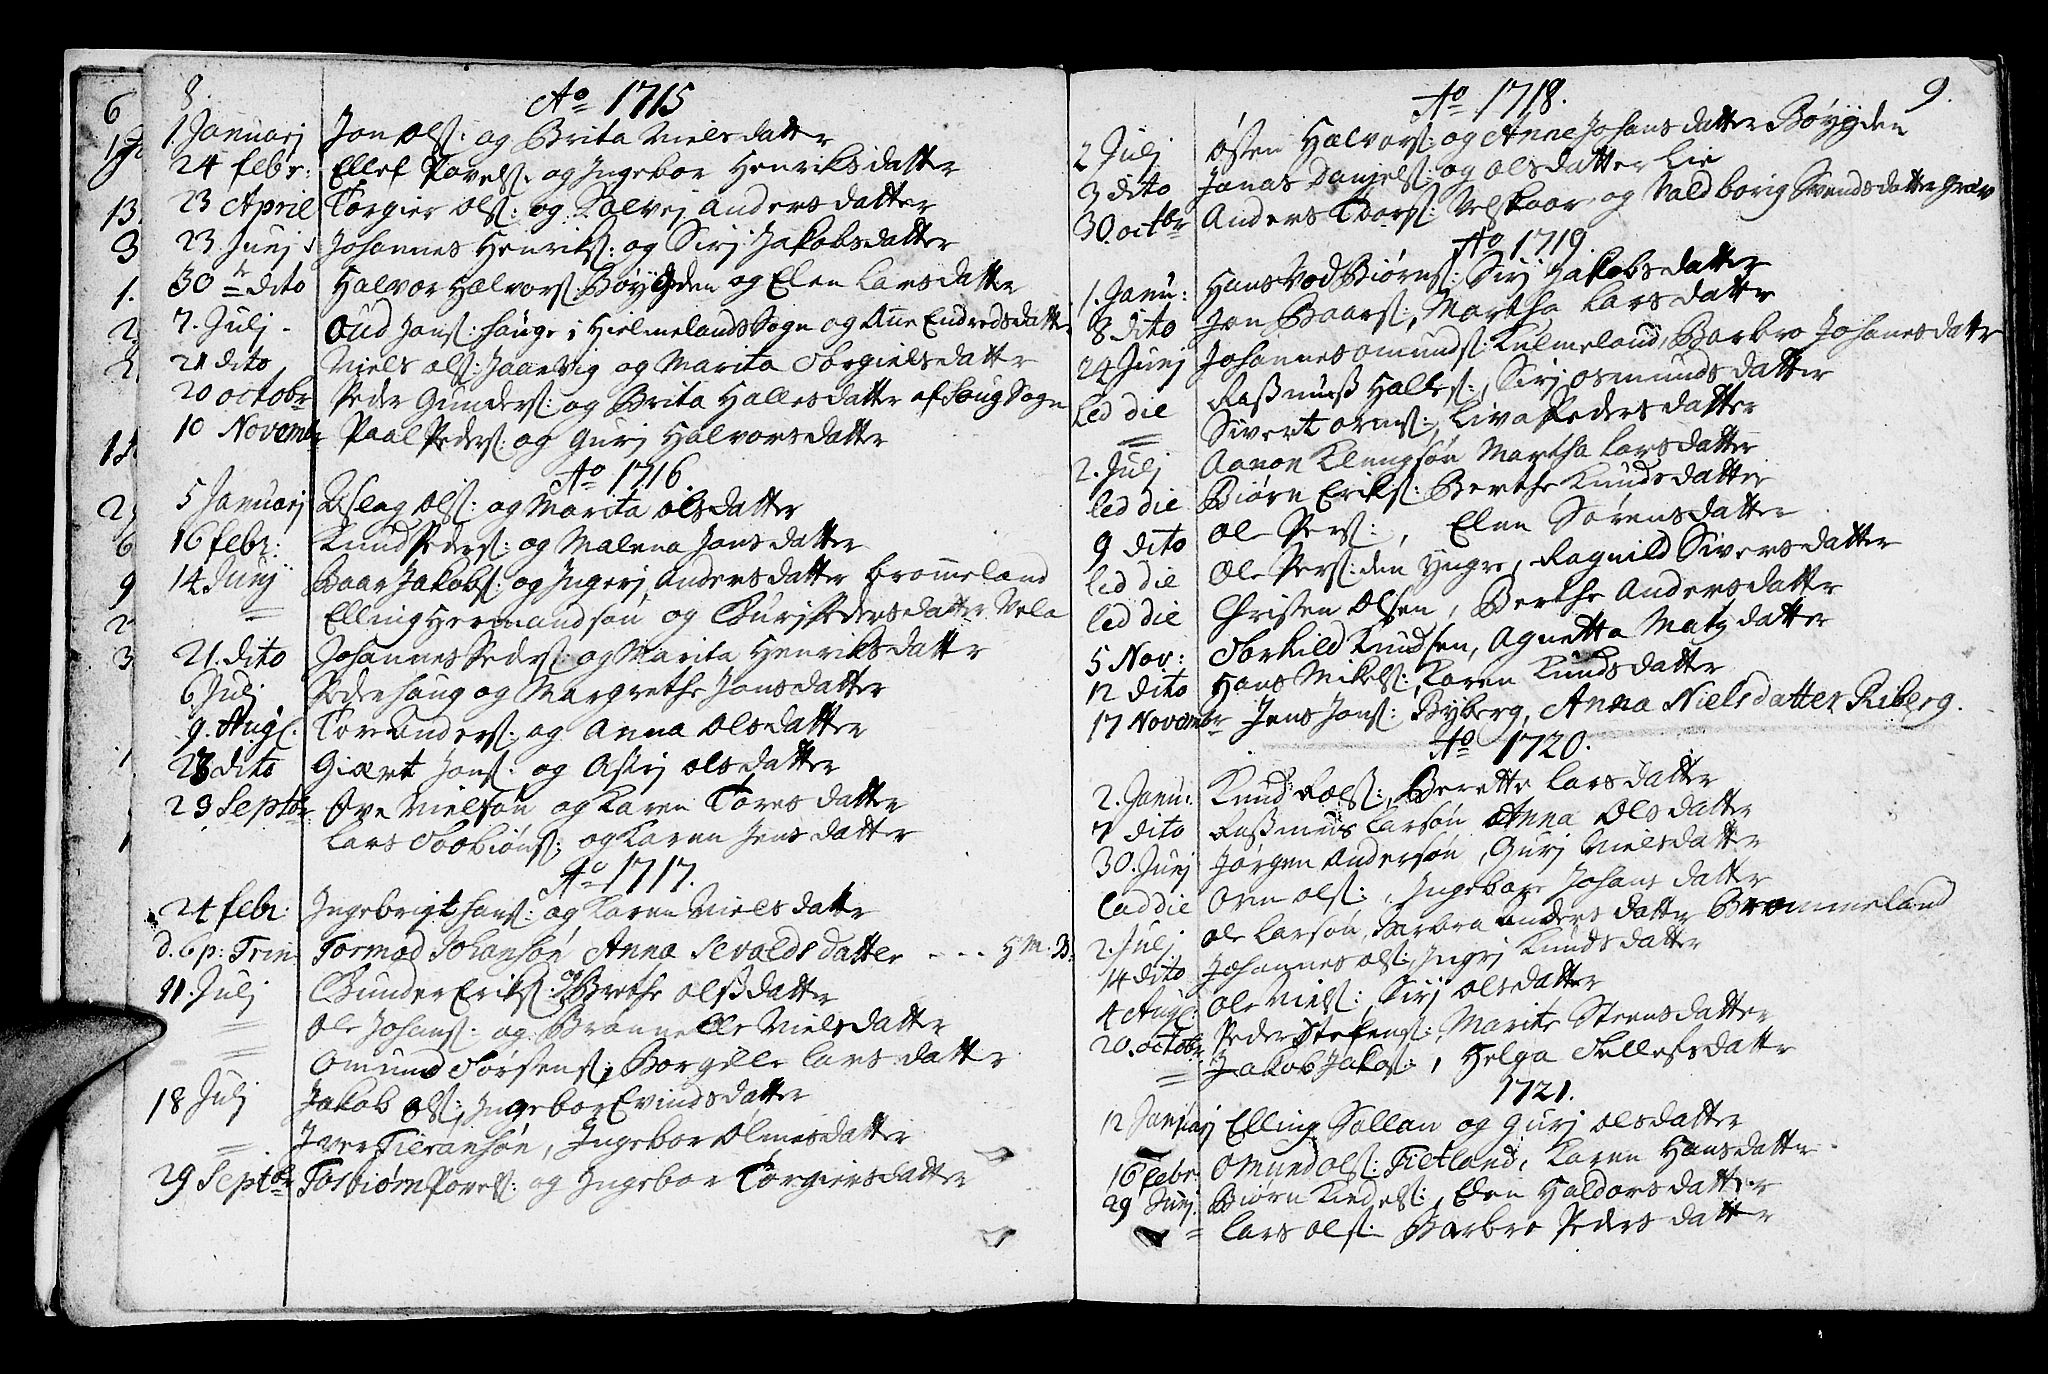 8.
Ao 1715
1 Januarj Jon Ols: og Brita Nielsdatter
24 febr: Ellef Povels: og Ingebor Henriksdatter
23 April Torgier Ols: og Solvej Andersdatter
23 Junj Johannes Henriks: og Sirj Jakobsdatter
30 dito Halvor Halvors: Bøygden og Elen Larsdatter
7. Julj - Oud Jons: hauge i Hielmelands Sogn og Anne Endredsdatter
21 dito Niels Ols: Jaarvig og Marita Torgielsdatter
20 octobr Peder Gunders: og Brita Hallesdatter af Saug Sogn
10 Novembr Paal Peders: og Gurj Halvorsdatter
Ao 1716
5 Januarj Aslag Ols: og Marita Olsdatter
16 febr: Knud Peders: og Malena Jonsdatter
14 Junj Baar Jakobs: og Ingerj Andersdatter Brommeland
= Elling Hermandsøn og Gurj Pedersdatter Vela
21. dito Johannes Peders: og Marita Henriksdatter
6 Julj Peder haug og Margrethe Jonsdatter
9. Aug. Tore Anders: og Anna Olsdatter
23 dito Giært Jons: og Asirj Olsdatter
29 Septbr Ove Nielsøn og Karen Toresdatter
Lars Torbiøns: og Karen Jensdatter
Ao 1717.
24 febr: Ingebrigt Hans: og Karen Nielsdatter
d. 6 p: Trin: Tormod Johansøn Anna Sevaldsdatter - - - 5 M. B:
11. Julj Gunder Eriks: og Brethe Olsdatter
= Ole Johans: og Brønnelle Nielsdatter
= Omund Torstens: Borgille Larsdatter
18 Julj Jakob Ols: Ingebor Evindsdatter
= Iver Fieransøn, Ingebor Olmesdatter
29 Septbr Torbiørn Povels: og Ingebor Torgiersdatter
9.
Ao 1718.
2 Julj Østen Halvors: og Anne Johansdatter Bøygden
3 dito Jonas Danjels: og Olsdatter Lie
30. octbr Anders Thors: Velskaar og Valdborig Svendsdatter Grav
Ao 1719.
1. Janu: Hans Vod Biørns: Sirj Jakobsdatter
8 dito Jon Baars:, Martha Larsdatter
24 Junj Johannes Omunds: Kulmeland, Barbro Johanesdatter
eed die Rasmus Halles:, Sirj Osmundsdatter
= Sivert Orms:, Liva Pedersdatter
2. Julj Aanon Klemgsøn Martha Larsdatter
eed die Biørn Eriks: Berthe Knudsdatter
9 dito Ole Pers: , Elen Sørensdatter
eed die Ole Pers: den Yngre, Ragnild Siversdatter
eed die Christen Olsen, Berthe Andersdatter
5 Nov: Torkild Knudsen, Agnetta Matzdatter
12 dito Hans Mikels: Karen Knudsdatter
17 Novembr Jens Jons: Byberg, Anna Nielsdatter Riberg.
Ao 1720.
2. Janu: Knud Rols:, Berette Larsdatter
7 dito Rasmus Larsøn Anna Olsdatter
30. Junj Jørgen Andersøn, Gurj Nielsdatter
eed die Orm Ols: , Ingebore Johansdatter
2. Julj Ole Larsøn, Barbra Andersdatter Brommeland
14 dito Johannes Ols:, Ingrj Knudsdatter
4 Aug: Ole Niels:, Sirj Olsdatter
20. octobr Peder Stefens:, Marite Steensdatter
= Jakob Jakos: , Helga Tellefsdatter
1721.
12 Januarj Elling Sollan og Gurj Olsdatter
16 febr: Omund Ols: Tietland, Karen Hansdatter
29 Junj. Biørn Kiedels:, Elen Haldorsdatter
= Lars Ols: Barbro Pedersdatter